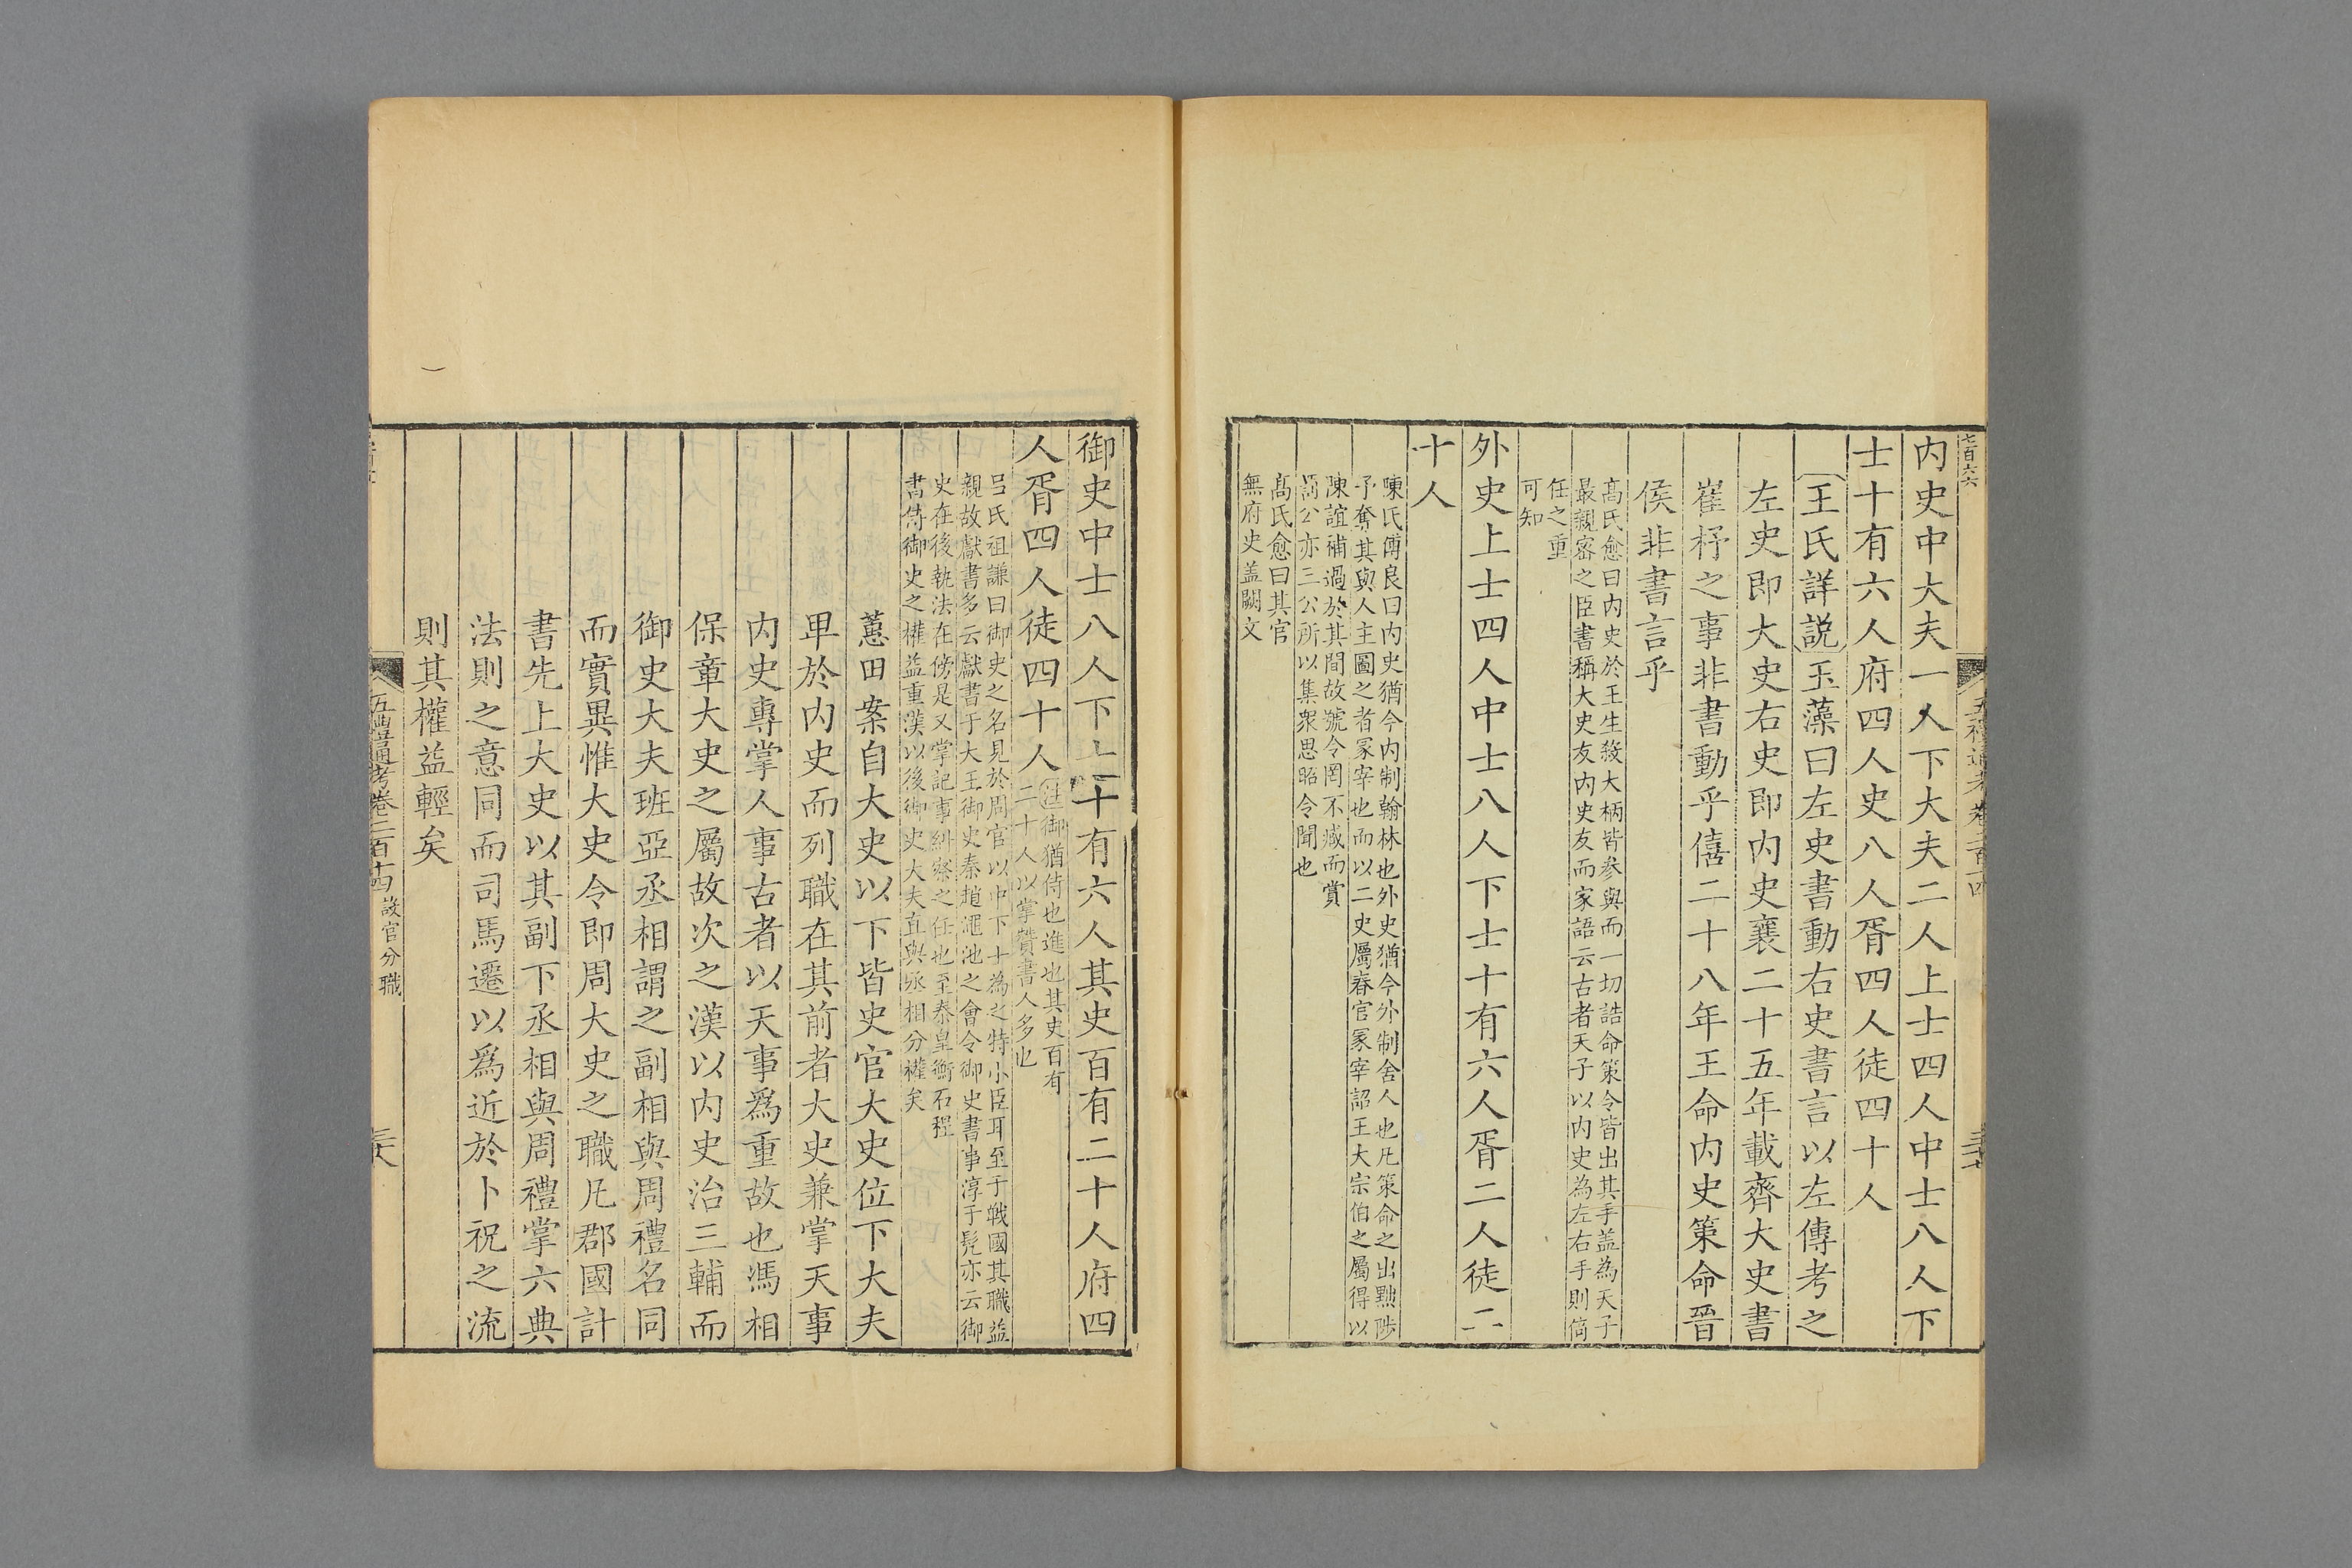 七百六六
五禮通考卷二百十四
三十七
内史中大夫一人下大夫二人上士四人中士八人下
士十有六人府四人史八人胥四人徒四十人
王氏詳説玉藻曰左史書動右史書言以左傳考之
左史即大史右史即内史襄二十五年載齊大史書
崔杼之事非書動乎僖二十八年王命内史策命晉
侯非書言乎
高氏愈曰内史於王生殺大柄皆參與而一切誥命策令皆出其手盖為天子
最親密之臣書稱大史友内史友而家語云古者天子以内史為左右手則倚
任之重
可知
外史上士四人中士八人下士十有六人胥二人徒二
十人
陳氏傅良曰内史猶今内制翰林也外史猶今外制舍人也凡策命之出黜陟
予奪其與人主圖之者冢宰也而以二史屬春官冢宰詔王大宗伯之屬得以
陳誼補過於其間故號令罔不臧而賞
罰公亦三公所以集衆思昭令聞也
高氏愈曰其官
無府史盖闕文
御史中士八人下士十有六人其史百有二十人府四
人胥四人徒四十人
注御猶侍也進也其史百有
二十人以掌贊書人多也
吕氏祖謙曰御史之名見於周官以中下士為之特小臣耳至于戰國其職益
親故獻書多云獻書于大王御史秦趙澠池之會令御史書事淳于髡亦云御
史在後執法在傍是又掌記事糾察之任也至秦皇衡石程
書侍御史之權益重漢以後御史大夫直與丞相分權矣
蕙田案自大史以下皆史官大史位下大夫
卑於内史而列職在其前者大史兼掌天事
内史專掌人事古者以天事爲重故也馮相
保章大史之屬故次之漢以内史治三輔而
御史大夫班亞丞相謂之副相與周禮名同
而實異惟大史令即周大史之職凡郡國計
書先上大史以其副下丞相與周禮掌六典
法則之意同而司馬遷以爲近於卜祝之流
則其權益輕矣
五禮通考卷二百十四 設官分職
三十八